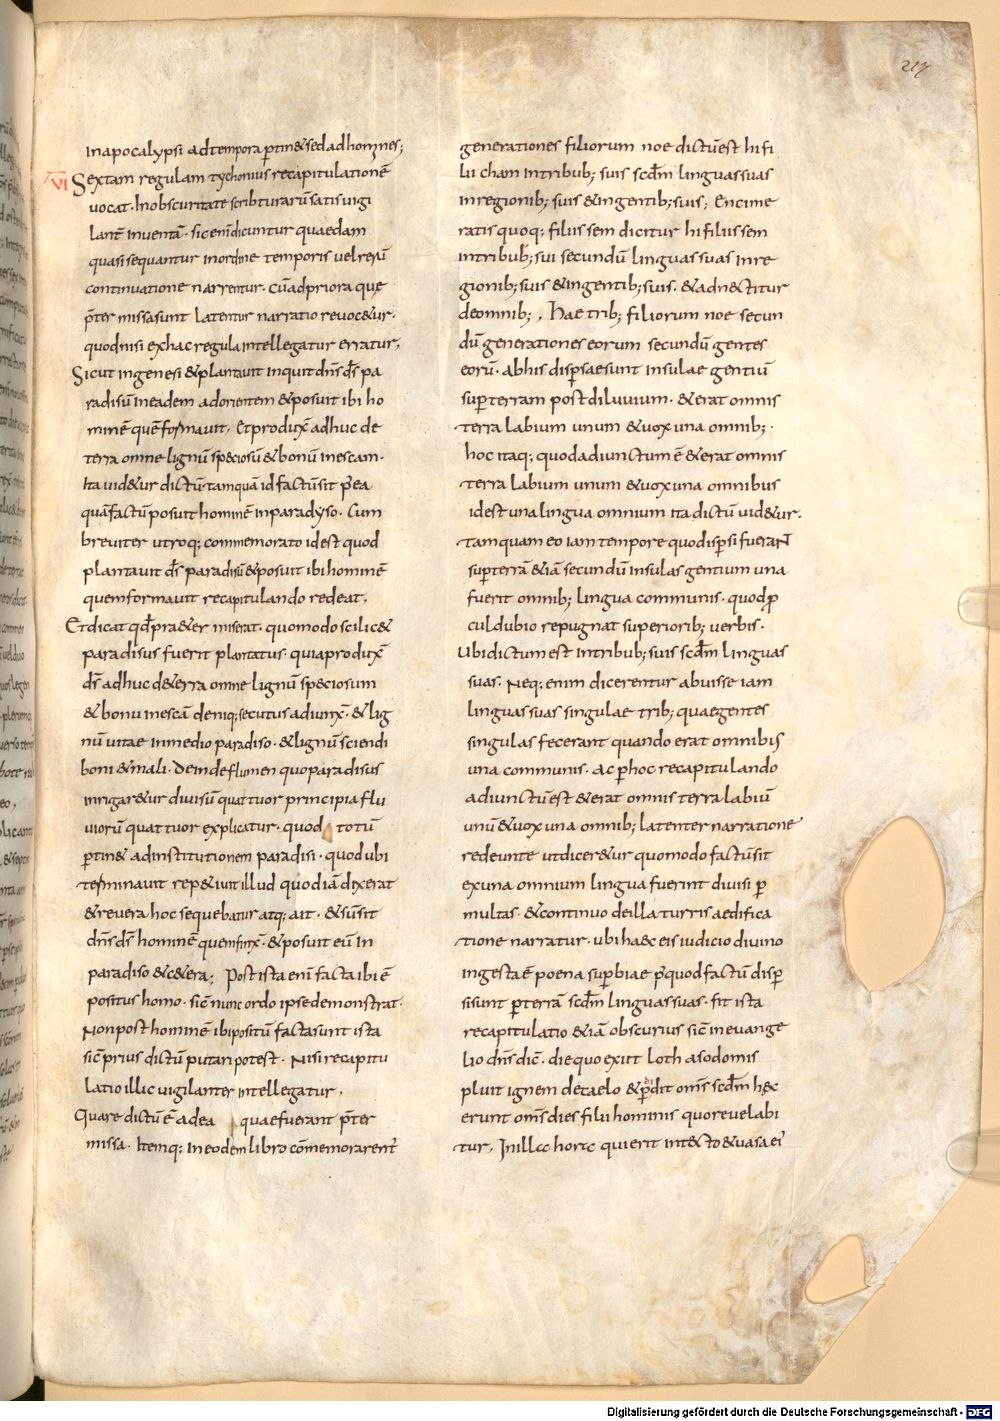 217
inapocalypsi ad tempora ꝑtin& sed adhomines;
VI Sextam regulam tychonius recapitulationē
uocat. Inobscuritate scribturarū satis uigi
lant̄ inuentā. sic enī dicuntur quaedam
quasi sequantur inordine temporis uel rerū
continuatione narrentur. cū adpriora quę
p̄ter missa sunt latenter narratio reuoc&ur.
quod nisi exhac regula intellegatur erratur;
Sicut ingenesi & plantauit inquit dn̄s d̄s pa
radisū ineadem adorientem & posuit ibi ho
minē quē formauit. Et produx̄ adhuc de
terra omne lignū speciosū & bonū inescam.
Ita uid&ur dictū tamquā id factū sit p̄ea
quā factū posuit hominē inparadyso. Cum
breuiter utroq; commemorato idest quod
plantauit d̄s paradisū & posuit ibi hominē
quem formauit recapitulando redeat.
Et dicat qd̄ pra&er miserat. quomodo scilic&
paradisus fuerit plantatus. quia produx̄
d̄s adhuc d&erra omne lignū speciosum
& bonu inescā deniq; secutus adiunx̄. & lig
nū uitae inmedio paradiso. & lignū sciendi
boni & mali. Deinde flumen quo paradisus
inrigar&ur diuisū quattuor principia flu
uiorū quattuor explicatur. quod totū
ꝑtin& adinstitutionem paradisi. quod ubi
terminauit rep&iuit illud quod iā dixerat
& reuera hoc sequebatur atq; ait. & sūsit
dn̄s d̄s hominē quem finx̄. & posuit eū in
paradiso & c&era; Post ista enī facta ibi ē
positus homo. sic̄ nunc ordo ipse demonstrat.
Non post hominē ibi positū facta sunt ista
sic̄ prius dictū putari potest. Nisi recapitu
latio illic uigilanter intellegatur.
Quare dictū ē adea quae fuerant p̄ter
missa. Itemq; ineodem libro cōmemorarent̄
generationes filiorum noe dictū est hi fi
lii cham intribub; suis scd̄m linguas suas
inregionib; suis & ingentib; suis; Enume
ratis quoq; filiis sem dicitur hi filii sem
intribub; sui secundū linguas suas inre
gionib; suis & ingentib; suis. & adnectitur
deomnib;. Hae trib; filiorum noe secun
dū generationes eorum secundū gentes
eorū. abhis disꝑsae sunt insulae gentiū
suꝑ terram post diluuium. & erat omnis
terra labium unum & uox una omnib;.
hoc itaq; quod adiunctum ē & erat omnis
terra labium unum & uox una omnibus
idest una lingua omnium ita dictū uid&ur.
tamquam eo iam tempore quo disꝑsi fuerant
suꝑ terrā & iā secundū insulas gentium una
fuerit omnib; lingua communis. quod ꝓ
cul dubio repugnat superiorib; uerbis.
Ubi dictum est intribub; suis scd̄m linguas
suas. Neq; enim dicerentur abuisse iam
linguas suas singulae trib; quae gentes
singulas fecerant quando erat omnibus
una communis. Ac ꝑ hoc recapitulando
adiunctū est & erat omnis terra labiū
unū & uox una omnib; latenter narratione
redeunte ut dicer&ur quomodo factū sit
ex una omnium lingua fuerint diuisi ꝑ
multas. & continuo de illa turris aedifica
tione narratur. ubi haec eis iudicio diuino
ingesta ē poena suꝑbiae p̄ quod factū disꝑ
si sunt ꝑ terrā scd̄m linguas suas. fit ista
recapitulatio & iā obscurius sic̄ in euange
lio dn̄s dic̄. die quo exiit loth asodomis
pluit ignem decaelo & ꝑdit om̄s scd̄m hęc
erunt om̄s dies filii hominis quo reuelabi
tur. In illa hora qui erit intecto & uasa ei'
Digitalisierung gefördert durch die Deutsche Forschungsgemeinschaft - DFG